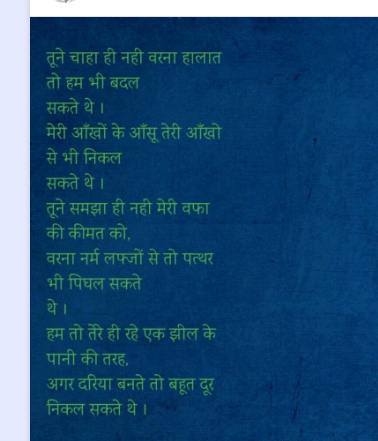 तूने चाहा ही नही वरना हालात
तो हम भी बदल
सकते थे ।
मेरी आँखों के आँसू तेरी आँखो
से भी निकल
सकते थे ।
तूने समझा ही नही मेरी वफा
की कीमत को,
वरना नर्म लफ्जों से तो पत्थर
भी पिघल सकते
थे ।
हम तो तेरे ही रहे एक झील के
पानी की तरह,
अगर दरिया बनते तो बहूत दूर
निकल सकते थे ।